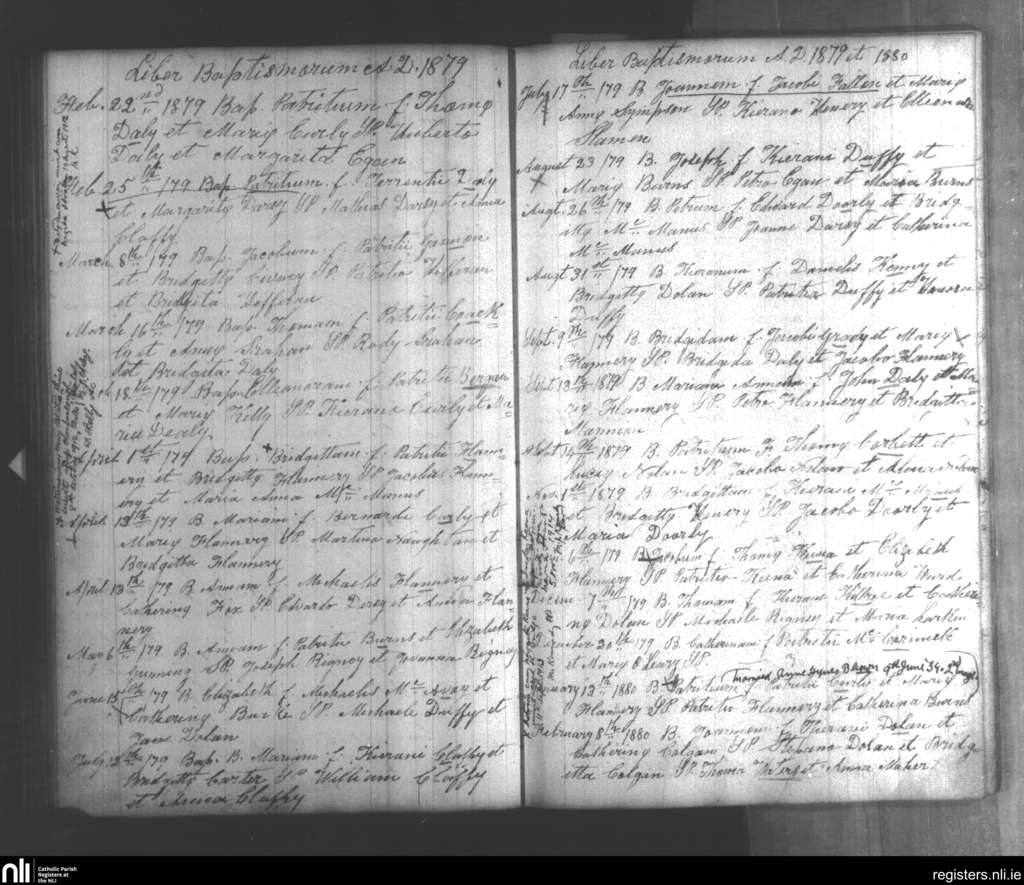 Liber Baptismorum A.D. 1879
Feb. 22nd 1879 Bap. Patritium f. Thomę
Daly et Marię Curly SP. Huberto
Daly et Margarita Egan
Feb. 25th /79 Bap Patritium f. Terrentii Daly
et Margaritę Darcy SP Mathias Darcy et Anna
Claffy
March 8th /79 Bap. Jacobum f. Patritii Gannon
et Bridgittę SP Patritio Heferan
et Bridgita Hefferan
March 16th /79 Bap. Thomam f. Patritii Coack-
ly et Annę Strahan SP. Rody Strahan
et Bridgita Daly
18th /79 Bap. Elleanoram f. Patritii
et Marię Kelly SP. Kierano Curly et Ma-
ria Dealy
April 1st /79 Bap. Bridgittam f. Patritii Flann-
ery et Bridgittę Flannery SP Jacobus Flann-
ery et Maria Anna Mc Manus
April 13th /79 B. Mariam f. Bernardi Curly et
Marię Flannery SP. Martino Naughtan et
Bridgitha Flannery
April 13th /79 B. Annam f. Michaelis Flannery et
Catherinę Fox SP. Edwardo et Anna Flan-
nery
Mar 6th /79 B. Annam f. Patritii Burns et Elizabeth
Cunning SP. Joseph Rigney et Joanna Rigney
June 15th /79 B. Elizabeth f. Michaelis Mc Avay et
Catherinę Burke SP. Michaele Duffy et
Jane Dolan
July 12th /79 Bap. B. Mariam f. Kierani Claffy et
Bridgittę Carter SP William Claffy
et Anna Claffy
Liber Baptismorum A.D. 1879 et 1880
July 17th /79 B Joannem f. Jacobi Fallon et Marię
Annę Sympson SP. Kierano Henery et Elleanora
Slamon
August 23 /79 B. Joseph f Kierani Duffy et
Marię Burns SP Petro Egan et Maria Burns
Augt. 26th /79 B. Petrum f. Edward Doorly et Bridg-
ittę Mc Manus SP Joanne Darcy et Catharina
Mc Manus
Augt 31st /79 B Kieranum f. Danielis Kenny et
Bridgittę Dolan SP. Patritio Duffy et
Duffy
Sept. 9th /79 B. Bridgidam f. Jacobi Grady et Marię
Flannery SP. Bridgida Daly et Jacobo Flannery
Sept 13th 1879 B Mariam Annam f. John Daly et Ma-
rię Flannery SP. Petro Flannery et Bridgitta
Mannion
Sept 14th 1879 B. Patritium F. Thomę Corbett et
Lucię Nolan SP. Jacobo Nolan et
Nov. 1st 1879 B Bridgittam f. Kierani Mc Manus
et Bridgittę Henery SP. Jacobo Doorly et
Maria Doorly
6th /79 B Jacobum f. Thomę et Elizabeth
Flannery SP Patritio et Catherina Ward
Decem 7th /79 B. Thomam f. Kierani et Cather-
inę Dolan SP. Michaele Rigney et Maria Larkin
20th /79 B. Catherinam f Patritii Mc Cormick
et Marię O'Leary SP.
Married Anne Hynes Bhein 9th June 34.
January 13th 1880 B Patritium f. Patritii Curtis et Marię
Flannery SP. Patritio Flannery et Catherina Burns
February 8th 1880 B. Joannem f. Kierani Dolan et
Catherinę Colgan SP Stefano Dolan et Bridg-
etta Colgan SP. Thoma et Anna Maher
nli
Catholic Parish
Registers at
the NLI
registers.nli.ie